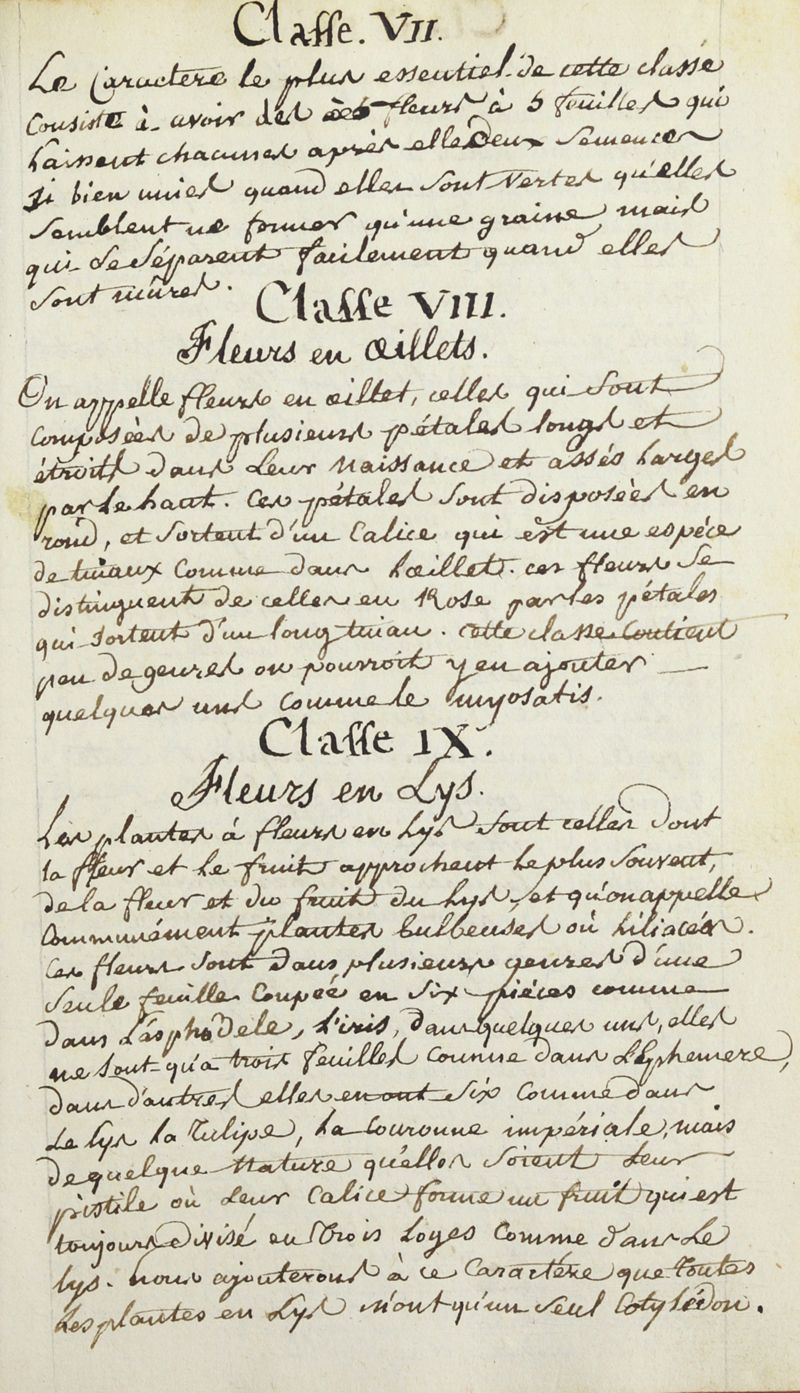 Classe. VII.
Le Caractere le plus essentiel de cette classe
consiste à avoir des fleurs à 5 feuilles qui
laissent chacunes après elle deux semences
si bien unies quand elles sont vertes qu'elles
semblent ne former qu'une graine mais
qui se séparent facilement quand elles
sont mûres.
Classe VIII.
Fleurs en œillets.
On appelle fleurs en œillet, celles qui sont
composées de plusieurs pétales longs et
étroits dans leur naissance et assés larges
par le haut. Ces pétales sont disposées en
rond, et sortent d'un Calice qui est une espéce
de tuiaux comme dans l'œillet. ces fleurs se
distinguent de celles en Rose par les pétales
qui sortent d'un long tuiau. cette classe contient
peu de genres on pourroit y en ajouter
quelques uns comme le myosatis.
Classe IX.
Fleurs en Lys.
Les plantes à fleurs en lys sont celles dont
la fleur et le fruit approchent le plus souvent,
de la fleur et du fruit du lys, et qu'on appelle
Communément plantes bulbeuses où liliacées.
Ces fleurs sont dans plusieurs genres d'une
seule feuille coupée en six piéces comme
dans l'asphodele, l'iris, dans quelques uns, elles
ne sont qu'a trois feuilles comme dans l'Ephemere,
dans d'autres elles en ont six comme dans
le lys la tulipe, la couronne impériale, mais
de quelque nature qu'elles soient leur
pistile où leur calice forme un fruit qui est
toujours divisé en trois loges comme dans le
lys. nous ajouterons à ce Caractére que toutes
les plantes en Lys n'ont qu'un seul Cotylédon.